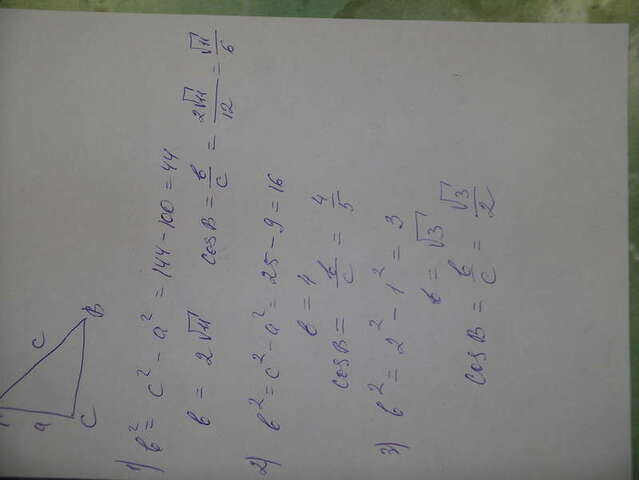 c
B
a
C
1) в² = c² - a² = 144 - 100 = 44
в = 2√11 cosB = в/c = 2√11/12 = √11/6
2) в² = c² - a² = 25 - 9 = 16
в = 4
cosB = в/c = 4/5
3) в² = 2² - 1² = 3
в = √3
cosB = в/c = √3/2